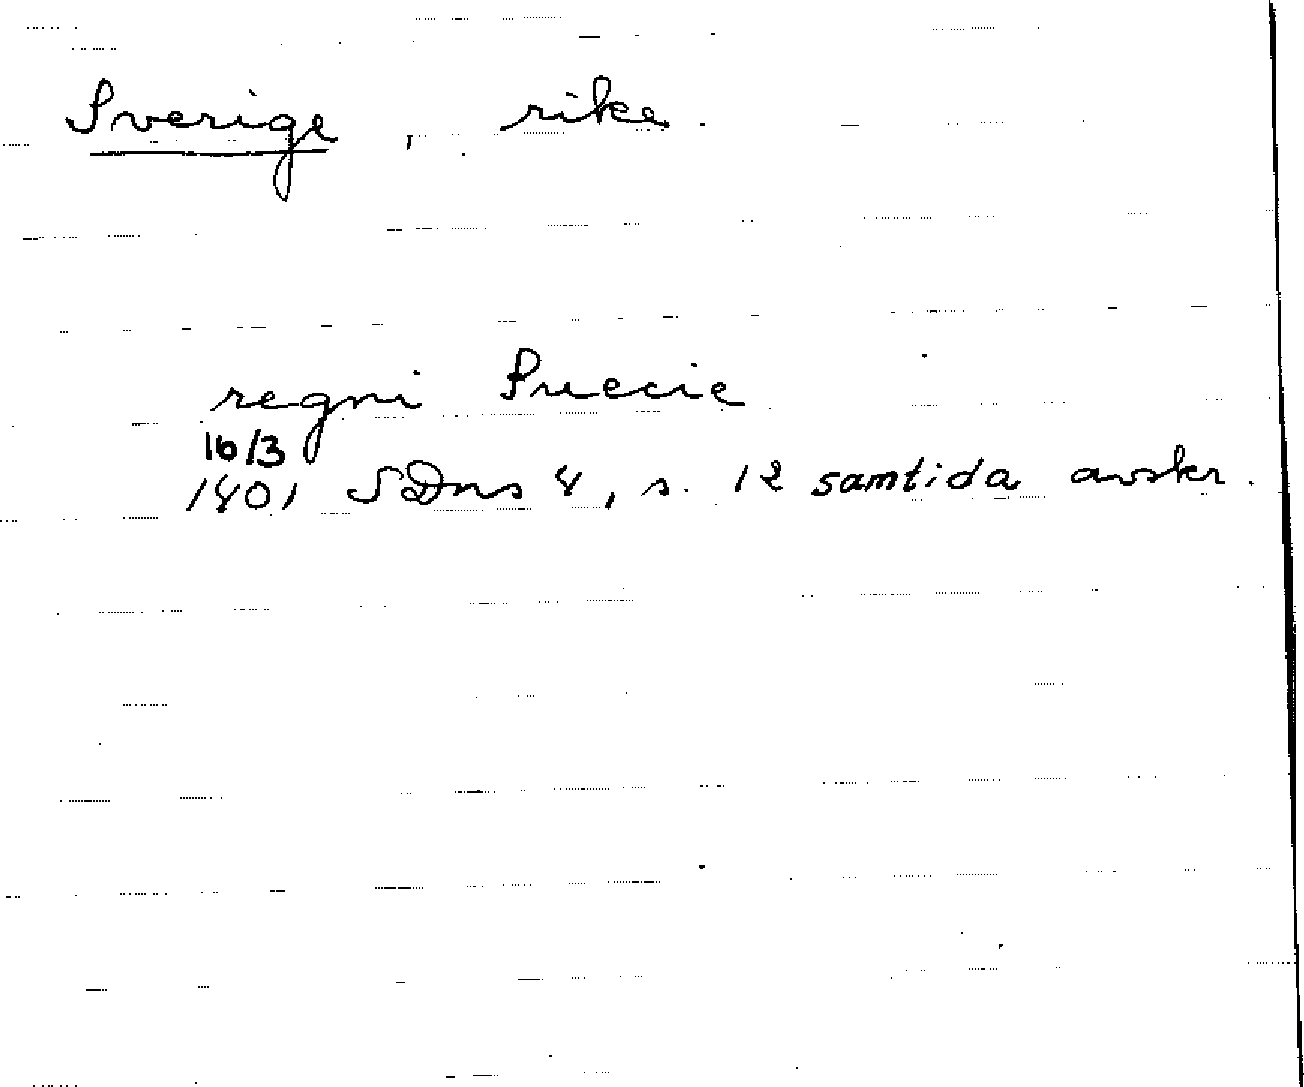 Sverige, rike.
regni Suecie
16/3
1401 SDns 4, s. 12 samtida avskr.